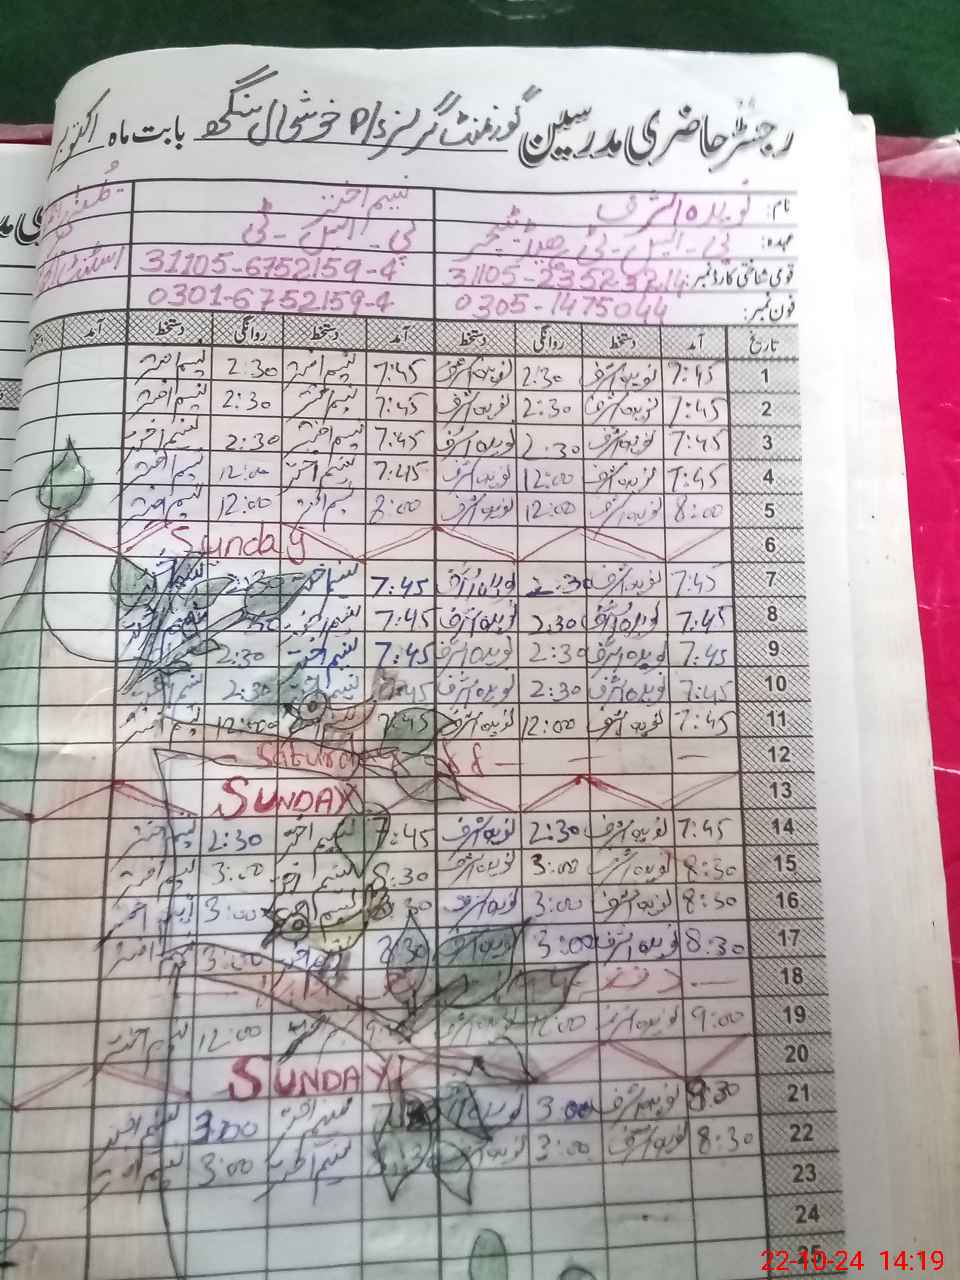 رجسٹر حاضری مدرسین گورنمنٹ گرلز P/S خوشحال سنگھ بابت ماہ اکتوبر
نام: نویدہ اشرف نسیم اختر
عہدہ: پی۔ایس۔ٹی ہیڈ ٹیچر پی۔ایس۔ٹی
قومی شناختی کارڈ نمبر: 31105-23523214 31105-6752159-4
فون نمبر: 0305-1475044 0301-6752159-4
تاریخ آمد دستخط روانگی دستخط آمد دستخط روانگی دستخط آمد
1 7:45 نویدہ اشرف 2:30 نویدہ اشرف 7:45 نسیم اختر 2:30 نسیم اختر
2 7:45 نویدہ اشرف 2:30 نویدہ اشرف 7:45 نسیم اختر 2:30 نسیم اختر
3 7:45 نویدہ اشرف 2:30 نویدہ اشرف 7:45 نسیم اختر 2:30 نسیم اختر
4 7:45 نویدہ اشرف 12:00 نویدہ اشرف 7:45 نسیم اختر 12:00 نسیم اختر
5 8:00 نویدہ اشرف 12:00 نویدہ اشرف 8:00 نسیم اختر 12:00 نسیم اختر
6 Sunday
7 7:45 نویدہ اشرف 2:30 نویدہ اشرف 7:45 نسیم اختر
8 7:45 نویدہ اشرف 2:30 نویدہ اشرف 7:45 نسیم اختر
9 7:45 نویدہ اشرف 2:30 نویدہ اشرف 7:45 نسیم اختر 2:30
10 7:45 نویدہ اشرف 2:30 نویدہ اشرف 7:45 2:30 نسیم اختر
11 7:45 نویدہ اشرف 12:00 نویدہ اشرف 7:45 نسیم 12:00 نسیم اختر
12 — — — —
13 SUNDAY
14 7:45 نویدہ اشرف 2:30 نویدہ اشرف 7:45 نسیم اختر 2:30 نسیم اختر
15 8:30 نویدہ اشرف 3:00 نویدہ اشرف 8:30 نسیم اختر 3:00 نسیم اختر
16 8:30 نویدہ اشرف 3:00 نویدہ اشرف 8:30 3:00 نسیم اختر
17 8:30 نویدہ اشرف 3:00 نویدہ اشرف 8:30 نسیم اختر 3:00 نسیم اختر
18 —
19 9:00 نویدہ اشرف 12:00 نویدہ اشرف نسیم اختر 12:00 نسیم اختر
20 SUNDAY
21 8:30 نویدہ اشرف 3:00 نویدہ اشرف نسیم اختر 3:00 نسیم اختر
22 8:30 نویدہ اشرف 3:00 نویدہ 8:30 نسیم اختر 3:00 نسیم اختر
23
24
25
22-10-24 14:19